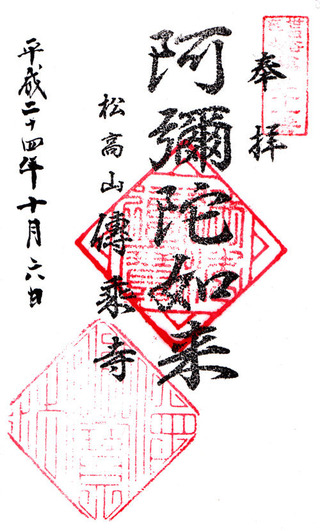 奉拝
阿彌陀如来
松高山傳乘寺
平成二十四年十月六日